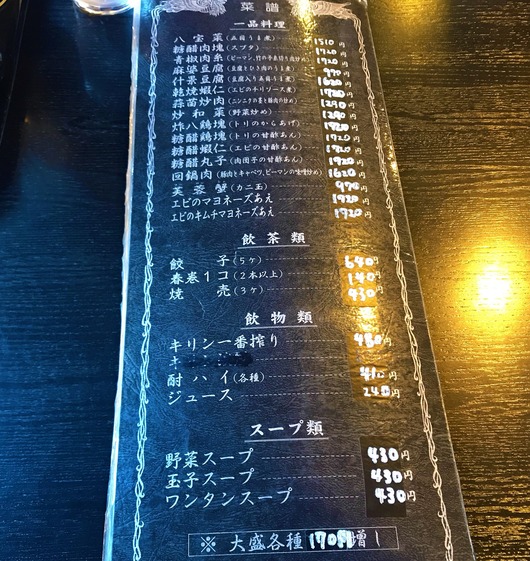 菜譜
一品料理
八宝菜(五目うま煮) 1510円
糖醋肉塊(スブタ) 1720円
青椒肉糸(ピーマン,竹の子糸切り肉炒め) 1720円
麻婆豆腐(豆腐とひき肉のうま煮) 970円
什景豆腐(豆腐入り五目うま煮) 1620円
乾焼蝦仁(エビのチリソース煮) 円
蒜苗炒肉(ニンニクの茎と豚肉の炒め) 1290円
炒和菜(野菜炒め) 1290円
炸八鶏塊(トリのからあげ) 円
糖醋鶏塊(トリの甘酢あん) 1720円
糖醋蝦仁(エビの甘酢あん) 円
糖醋丸子(肉団子の甘酢あん) 1720円
回鍋肉(豚肉とキャベツ,ピーマンの味噌炒め) 1620円
芙蓉蟹(カニ玉) 970円
エビのマヨネーズあえ 1720円
エビのキムチマヨネーズあえ 1720円
飲茶類
餃子(5ヶ) 640円
春巻1コ(2本以上) 140円
焼売(3ヶ) 430円
飲物類
キリン一番搾り 480円
酎ハイ(各種) 円
ジュース 240円
スープ類
野菜スープ 430円
玉子スープ 430円
ワンタンスープ 430円
※ 大盛各種170円増し